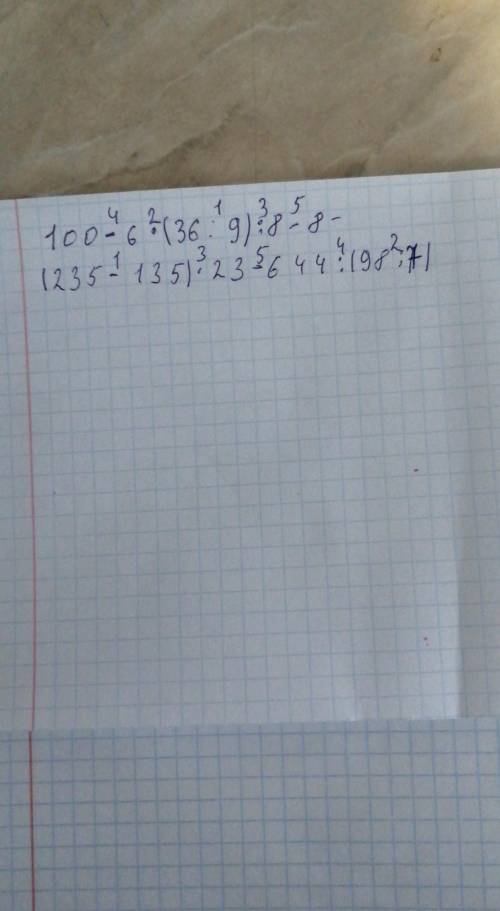 100 -⁴ 6 ·² (36 :¹ 9) :³ 8 -⁵ 8 -
(235 -¹ 135) ·³ 23 -⁵ 644 :⁴ (98 :² 7)